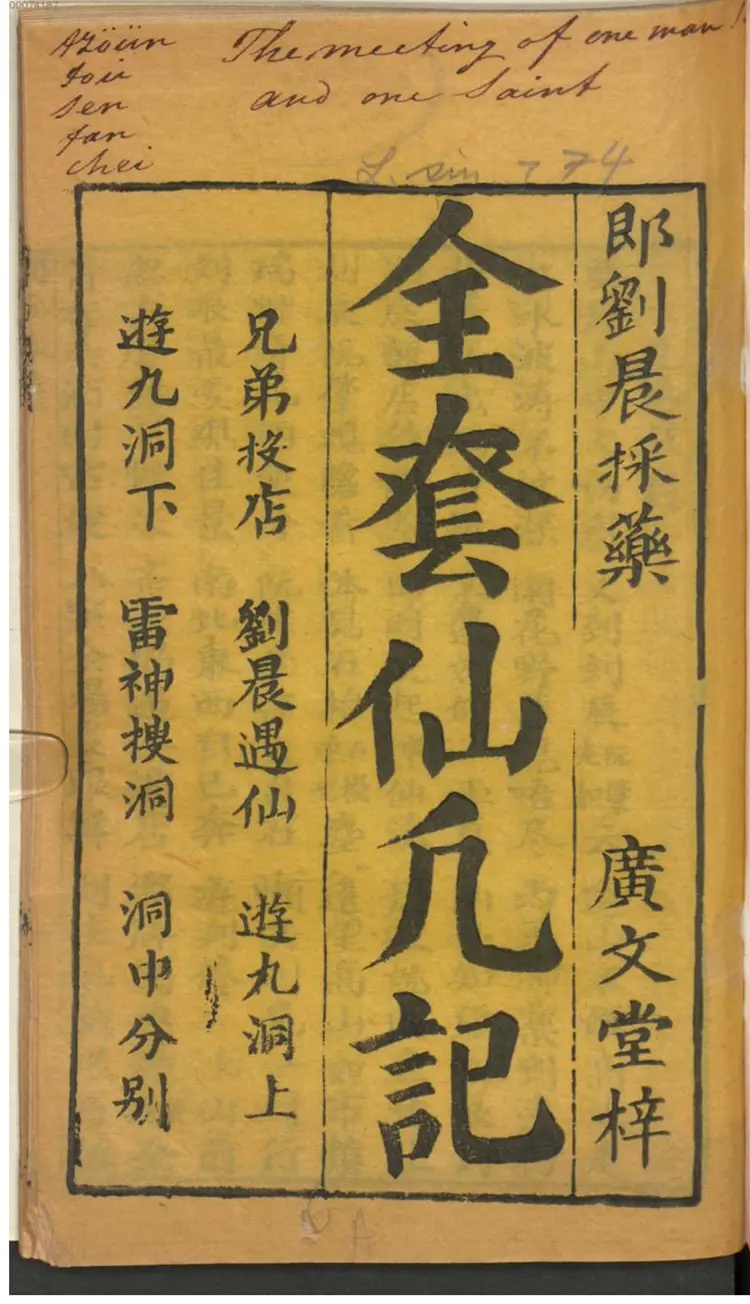 00074187
Azòün
toü
sen
fan
chei
The meeting of one man
and one Saint
L. sin. 774
即劉晨採藥
廣文堂梓
全套仙凢記
兄弟投店 劉晨遇仙 遊九洞上
遊九洞下 雷神搜洞 洞中分别